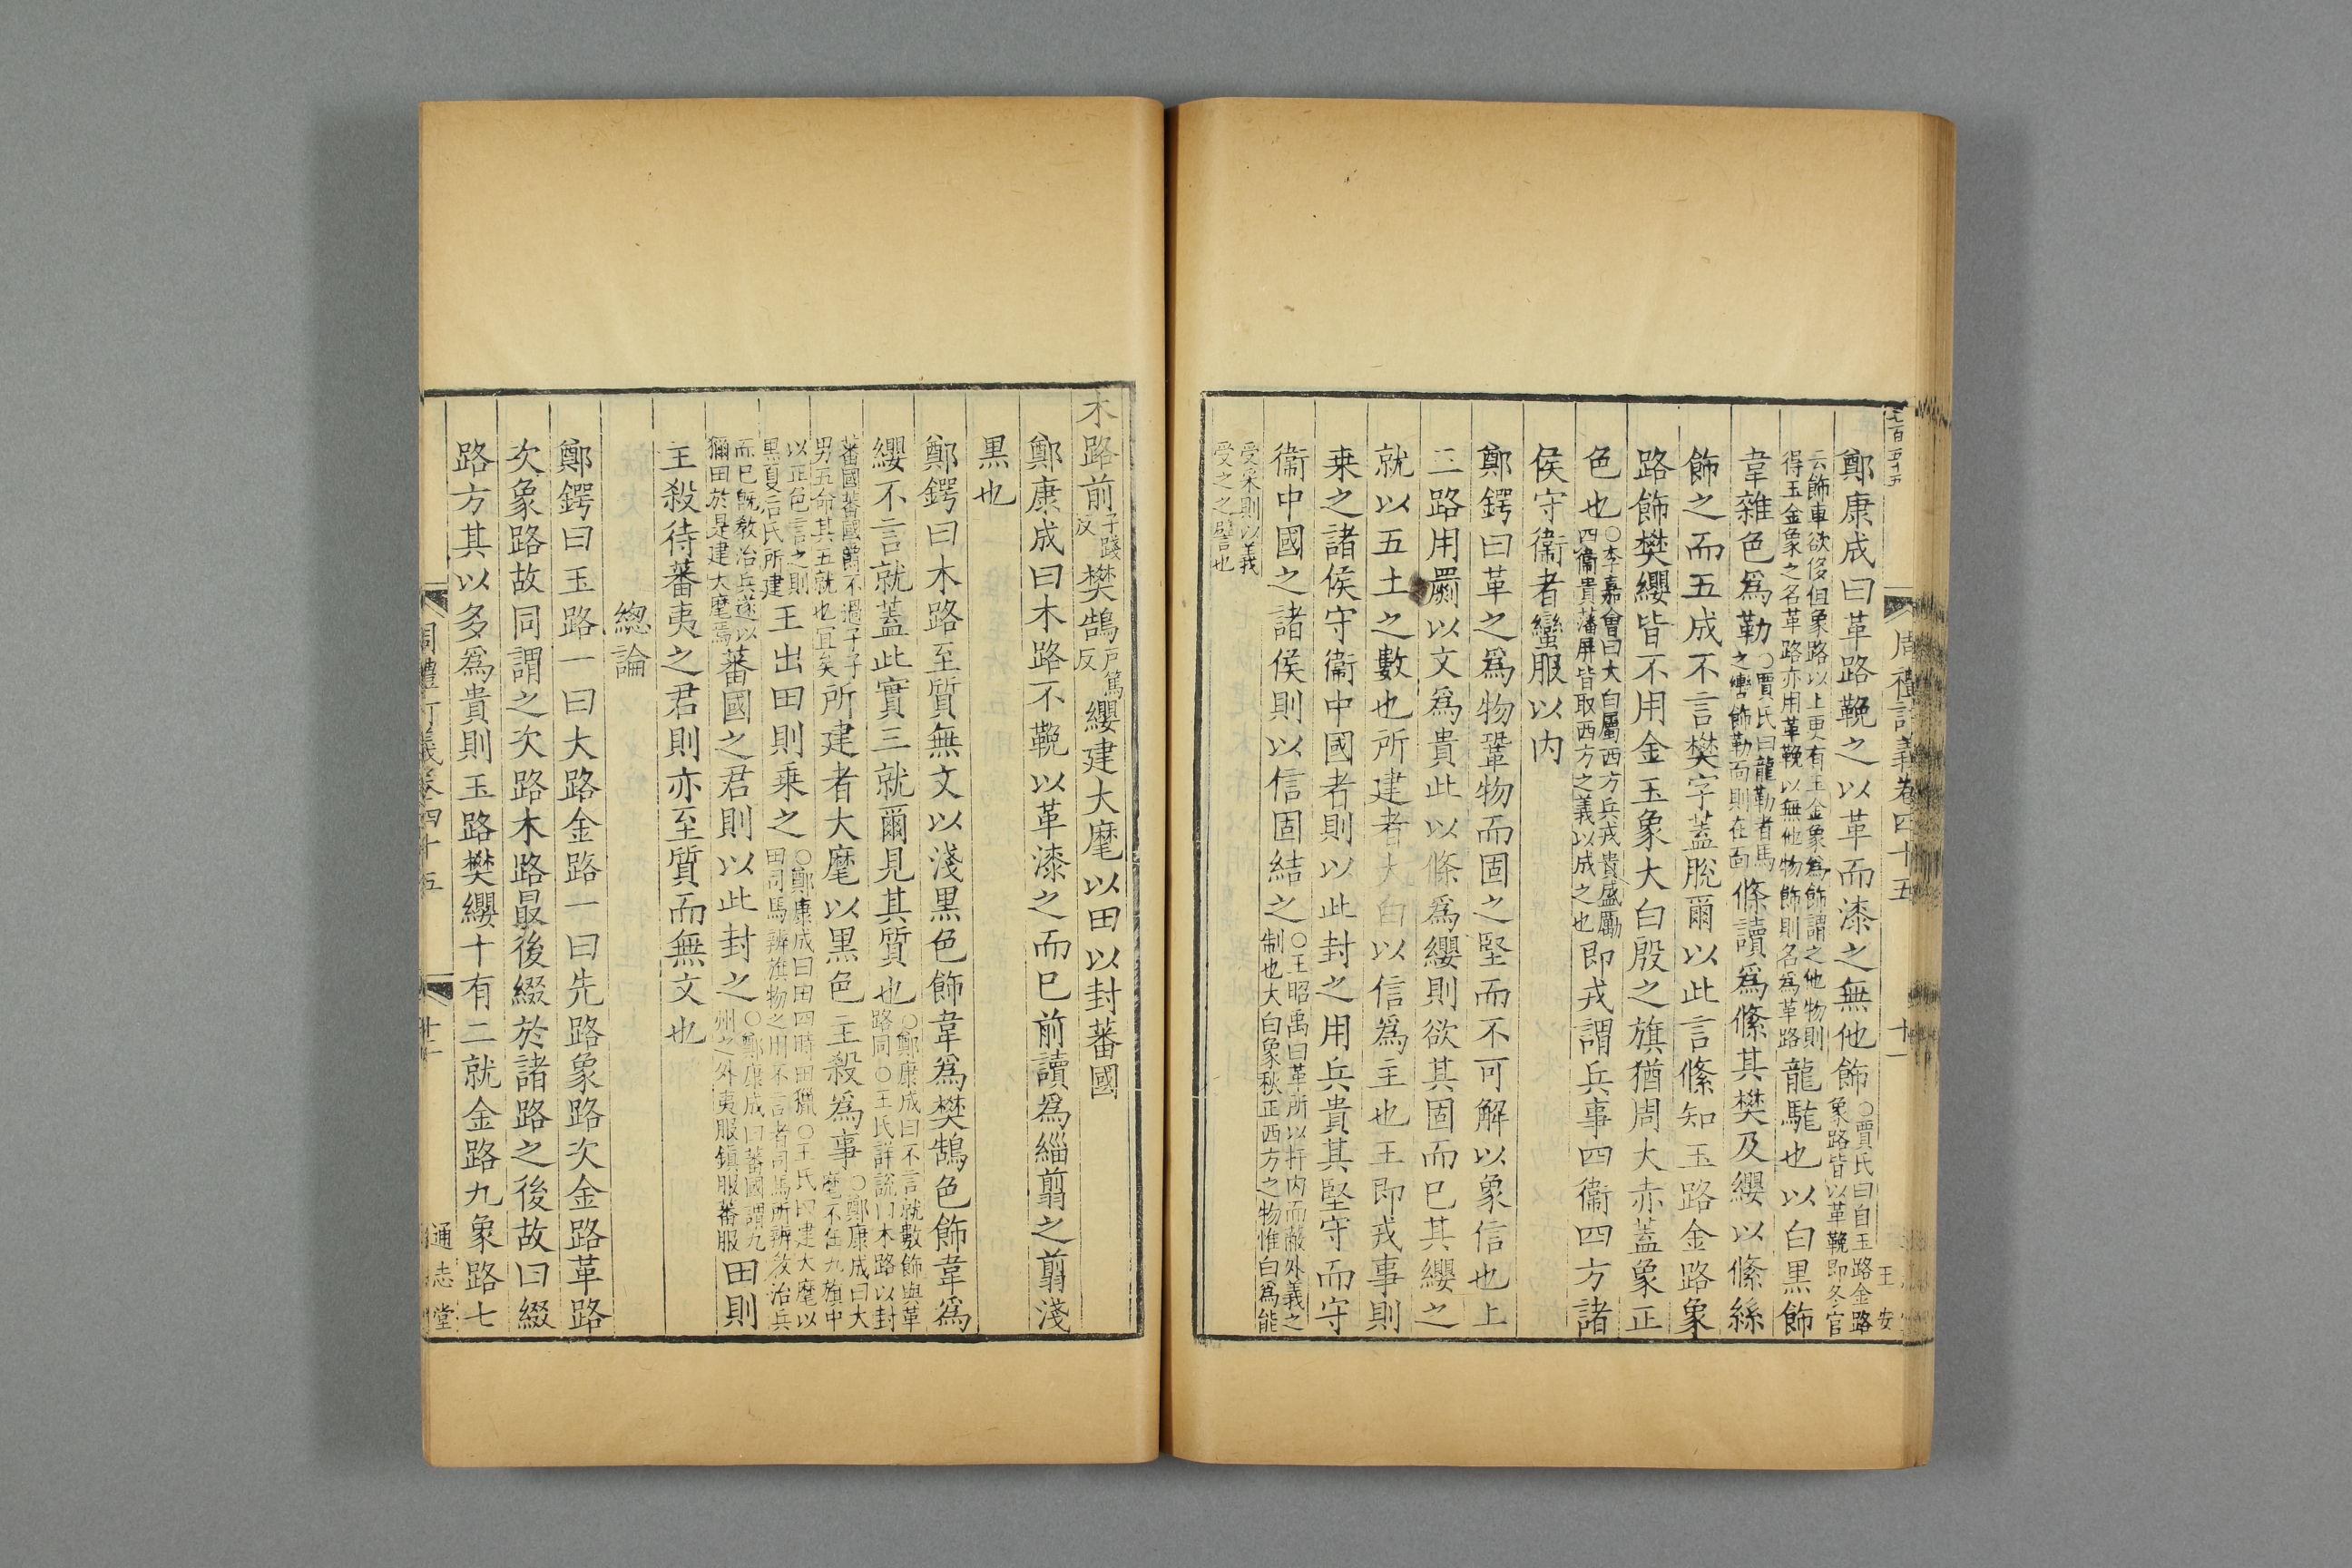 七百五十五
周禮訂義卷四十五
十一
王安
鄭康成曰革路鞔之以革而漆之無他飾○賈氏曰自玉路金路象路皆以革鞔即冬官
云飾車欲侈但象路以上更有玉金象為飾謂之他物則得玉金象之名革路亦用革鞔以無他物飾則名為革路龍駹也以白黒飾
韋雜色爲勒○賈氏曰龍勒者馬之轡飾勒面則在面條讀爲絛其樊及纓以絛絲
飾之而五成不言樊字蓋脫爾以此言絛知玉路金路象
路飾樊纓皆不用金玉象大白殷之旗猶周大赤蓋象正
色也○李嘉會曰大白屬西方兵戎貴盛勵四衞貴藩屏皆取西方之義以成之也即戎謂兵事四衞四方諸
侯守衞者蠻服以内
鄭鍔曰革之爲物鞏物而固之堅而不可解以象信也上
三路用罽以文爲貴此以條爲纓則欲其固而已其纓之
就以五土之數也所建者大白以信爲主也王即戎事則
乗之諸侯守衞中國者則以此封之用兵貴其堅守而守
衞中國之諸侯則以信固結之○王昭禹曰革所以扞内而蔽外義之制也大白象秋正西方之物惟白爲能
受采則以義受之之譬也
木路前子踐反樊鵠戸篤反纓建大麾以田以封蕃國
鄭康成曰木路不鞔以革漆之而已前讀爲緇翦之翦淺
黒也
鄭鍔曰木路至質無文以淺黒色飾韋爲樊鵠色飾韋爲
纓不言就蓋此實三就爾見其質也○鄭康成曰不言就數飾與革路同○王氏詳說曰木路以封
蕃國蕃國爵不過子子男五命其五就也宜矣所建者大麾以黒色主殺爲事○鄭康成曰大麾不在九旗中
以正色言之則黒夏后氏所建王出田則乗之○鄭康成曰田四時田獵○王氏曰建大麾以田司馬辨旗物之用不言者司馬所辨教治兵
而已旣敎治兵遂以獮田於是建大麾焉蕃國之君則以此封之○鄭康成曰蕃國謂九州之外夷服鎮服蕃服田則
主殺待蕃夷之君則亦至質而無文也
總論
鄭鍔曰玉路一曰大路金路一曰先路象路次金路革路
次象路故同謂之次路木路最後綴於諸路之後故曰綴
路方其以多爲貴則玉路樊纓十有二就金路九象路七
周禮訂義卷四十五
通志堂